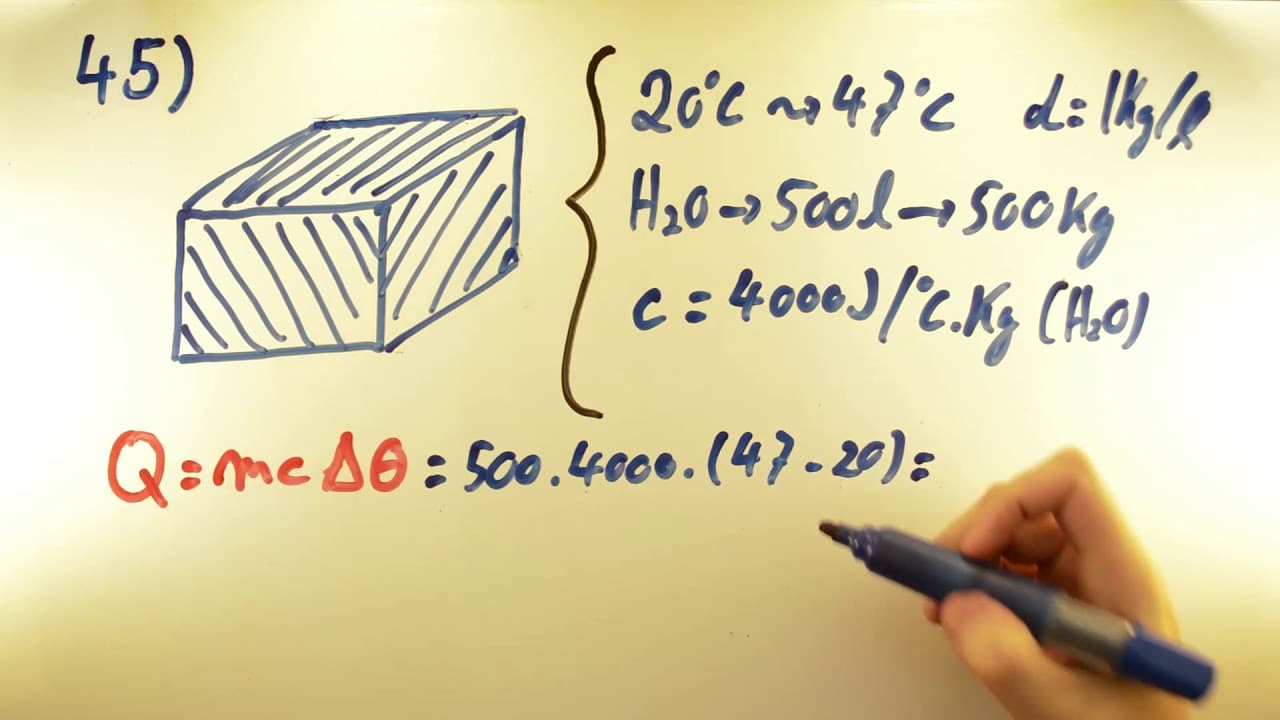 45)
20°C ⇝ 47°C d=1Kg/l
H₂O → 500l → 500Kg
c = 4000J/°C.Kg (H₂O)
Q = mcΔθ = 500.4000.(47-20) =